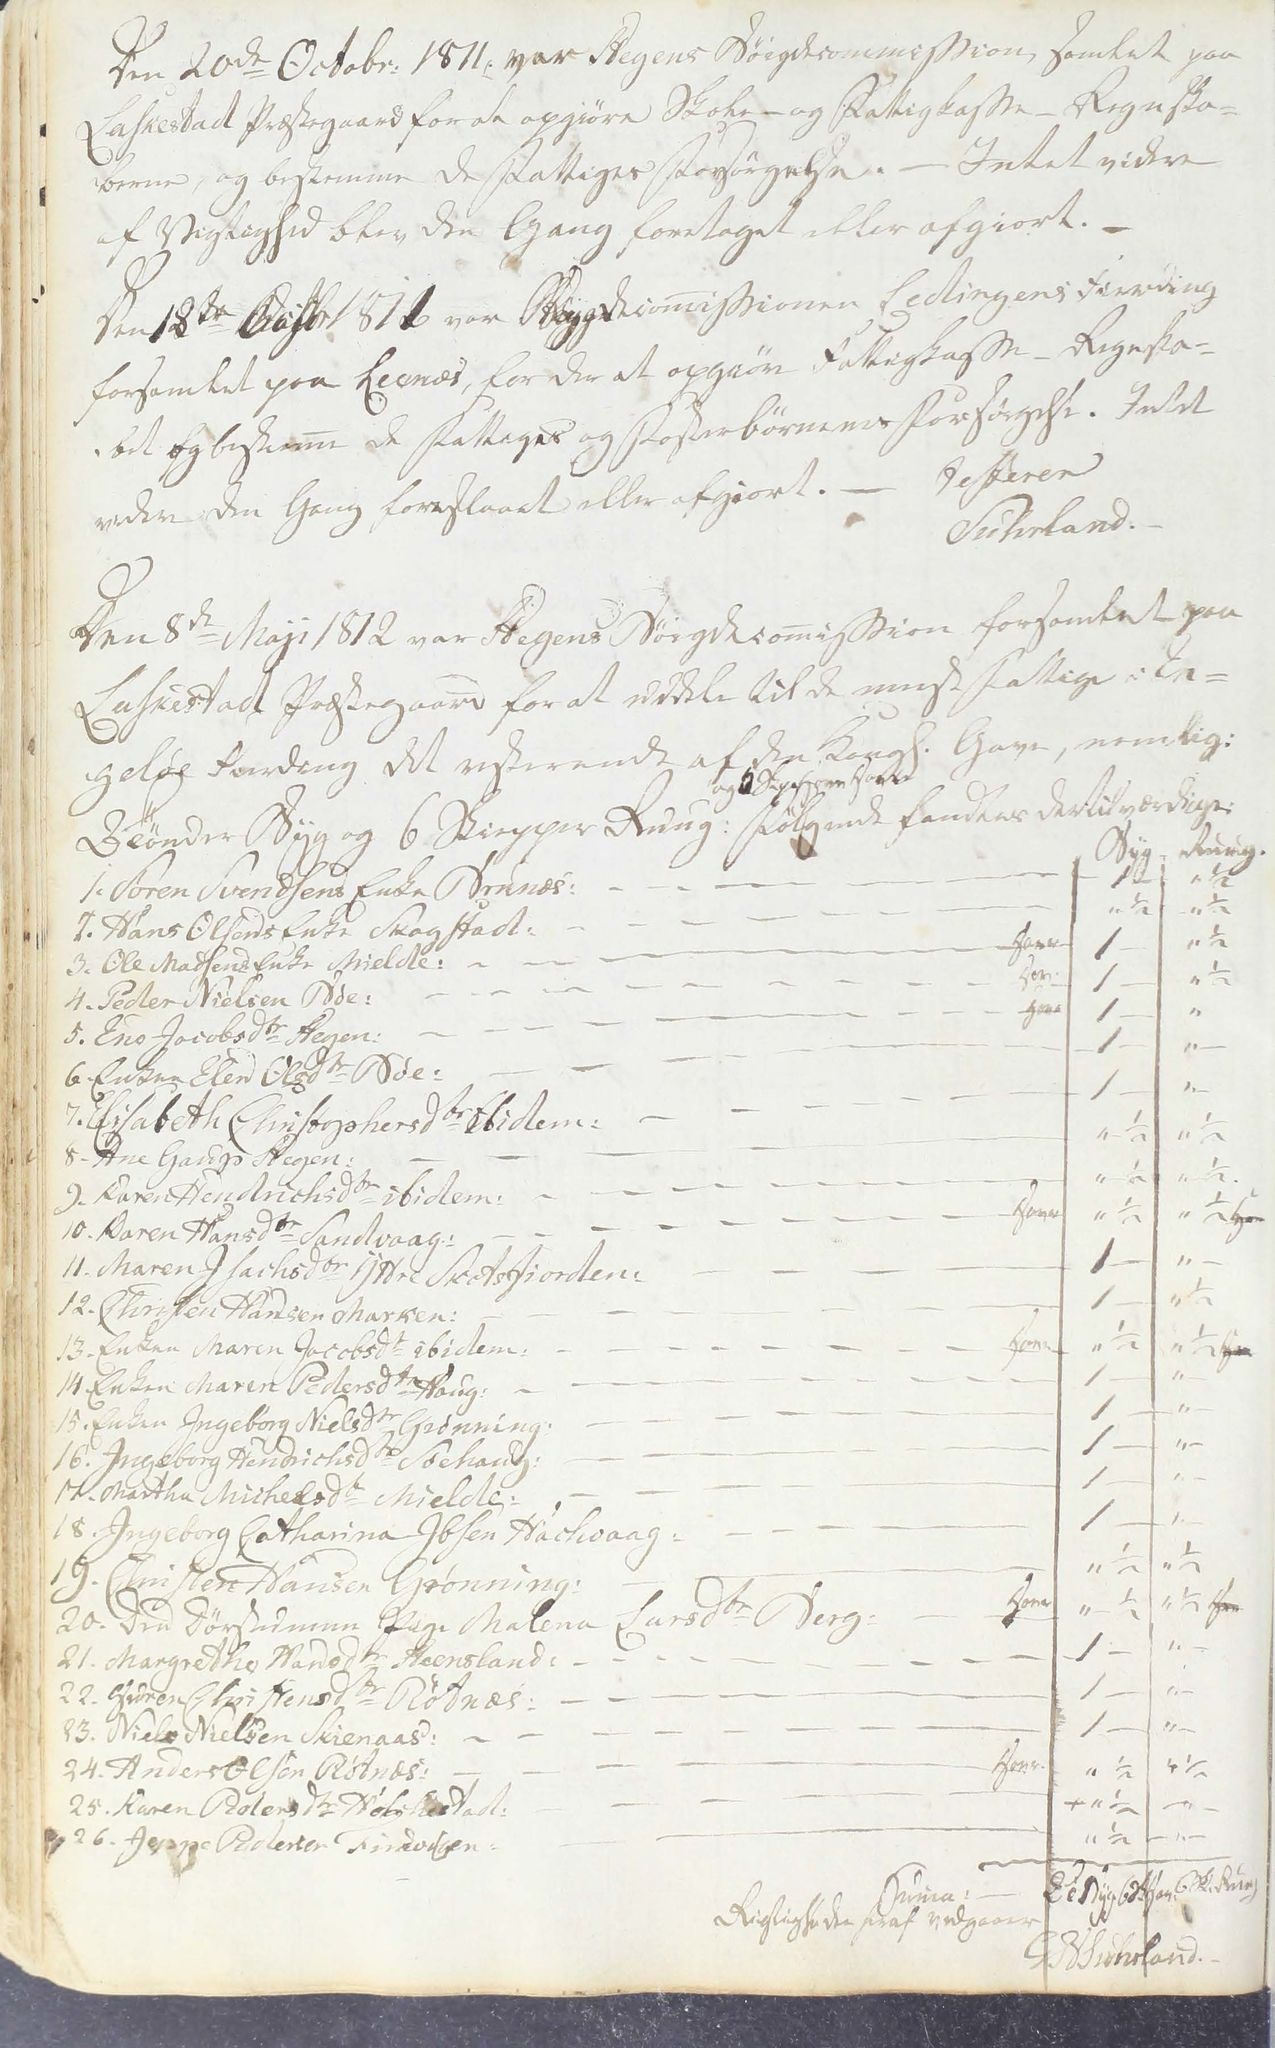 Den 20de Octobr: 1811, var Stegens Bøigdecommission samlet paa
Laskestad Præstegaard for at opgiøre Skole- og Fattigkasse-Regnska-
berne, og bestemme de Fattiges Forsørgelse. - Intet videre
af Vigtighed blev den Gang foretaget eller afgiort. -
Den 18de 1811 var Bøygdecom̅issionen Ledingens Fierding
forsamlet paa Leenæs, for der at opgiøre Fattigkasse-Regnska-
bet og bestem̅e de Fattiges og Fosterbørnenes Forsørgelse. Intet
videre den Gang foreslaaet eller afgiort. - Testerer
Suhrland. -
Den 8de Maji 1812 var Stegens Bøigdecom̅ission forsamlet paa
Laskestad Præstegaard for at uddele til de meest Fattige i En-
geløe Fierding det resterende af den Kongl. Gave, nemlig:
2 Tønder Byg og 6 Skiepper Ruug: Følgende fandtes dertil værdige:
Byg. Ruug.
1. Søren Svendsens Enke Brunæs: - - - 1 - " ½
2. Hans Olsens Enke Skagstad: - - - " ½ " ½
3. Ole Madsens Enke Mielde: - - - Havre 1 - " ½
4. Peder Nielsen Bøe: - - - Hav: 1 - " ½
5. Ens Jacobsdtr Stegen: - - - Havre 1 - "
6. Enken Elen Olsdtr Bøe: - - - 1 - " -
7. Elisabeth Christophersdtr ibidem: - - - 1 - " -
8. Ane Gaups Stegen: - - - " ½ " ½
9. Karen Hendrichsdtr ibidem: - - - " ½ " ½.
10. Karen Hansdtr Sandvaag: - - - Havre " ½ " ½
11. Maren Isachsdtr Yttre Skotsfiorden: - - - 1 - " -
12. Christen Hansen Marken: - - - 1 - " ½
13. Enken Maren Jacobsdtr ibidem: - - - Havre " ½ " ½
14. Enken Maren Pedersdtr Haug: - - - 1 - " -
15. Enken Ingeborg Nielsdtr Grønning: - - - 1 - " -
16. Ingeborg Hendrichsdtr Søehaug: - - - 1 - " -
17. Martha Michelsdtr Mielde: - - - 1 - " -
18. Ingeborg Catharina Ibsen Hachvaag: - - - 1 - " -
19. Christen Hansen Grønning: - - - " ½ " ½
20. Den Døvstumme Pige Malena Larsdtr Berg: - - - Havre " ½ " ½
21. Margrethe Hansdtr Steensland: - - - 1 - " -
22. Christensdtr Røtnæs: - - - 1 - " -
23. Niels Nielsen Skienaas: - - - 1 - " -
24. Anders Olsen Røtnæs: - - - Havre " ½ " ½
25. Karen Pedersdtr Holchestad: - - - " ½ - " -
26. Jeppe Pedersen - - - " ½ - " -
Suma: - 2 Tr Byg 6 Sk. Ruug
Rigtigheden heraf vedgaaer
Suhrland. -